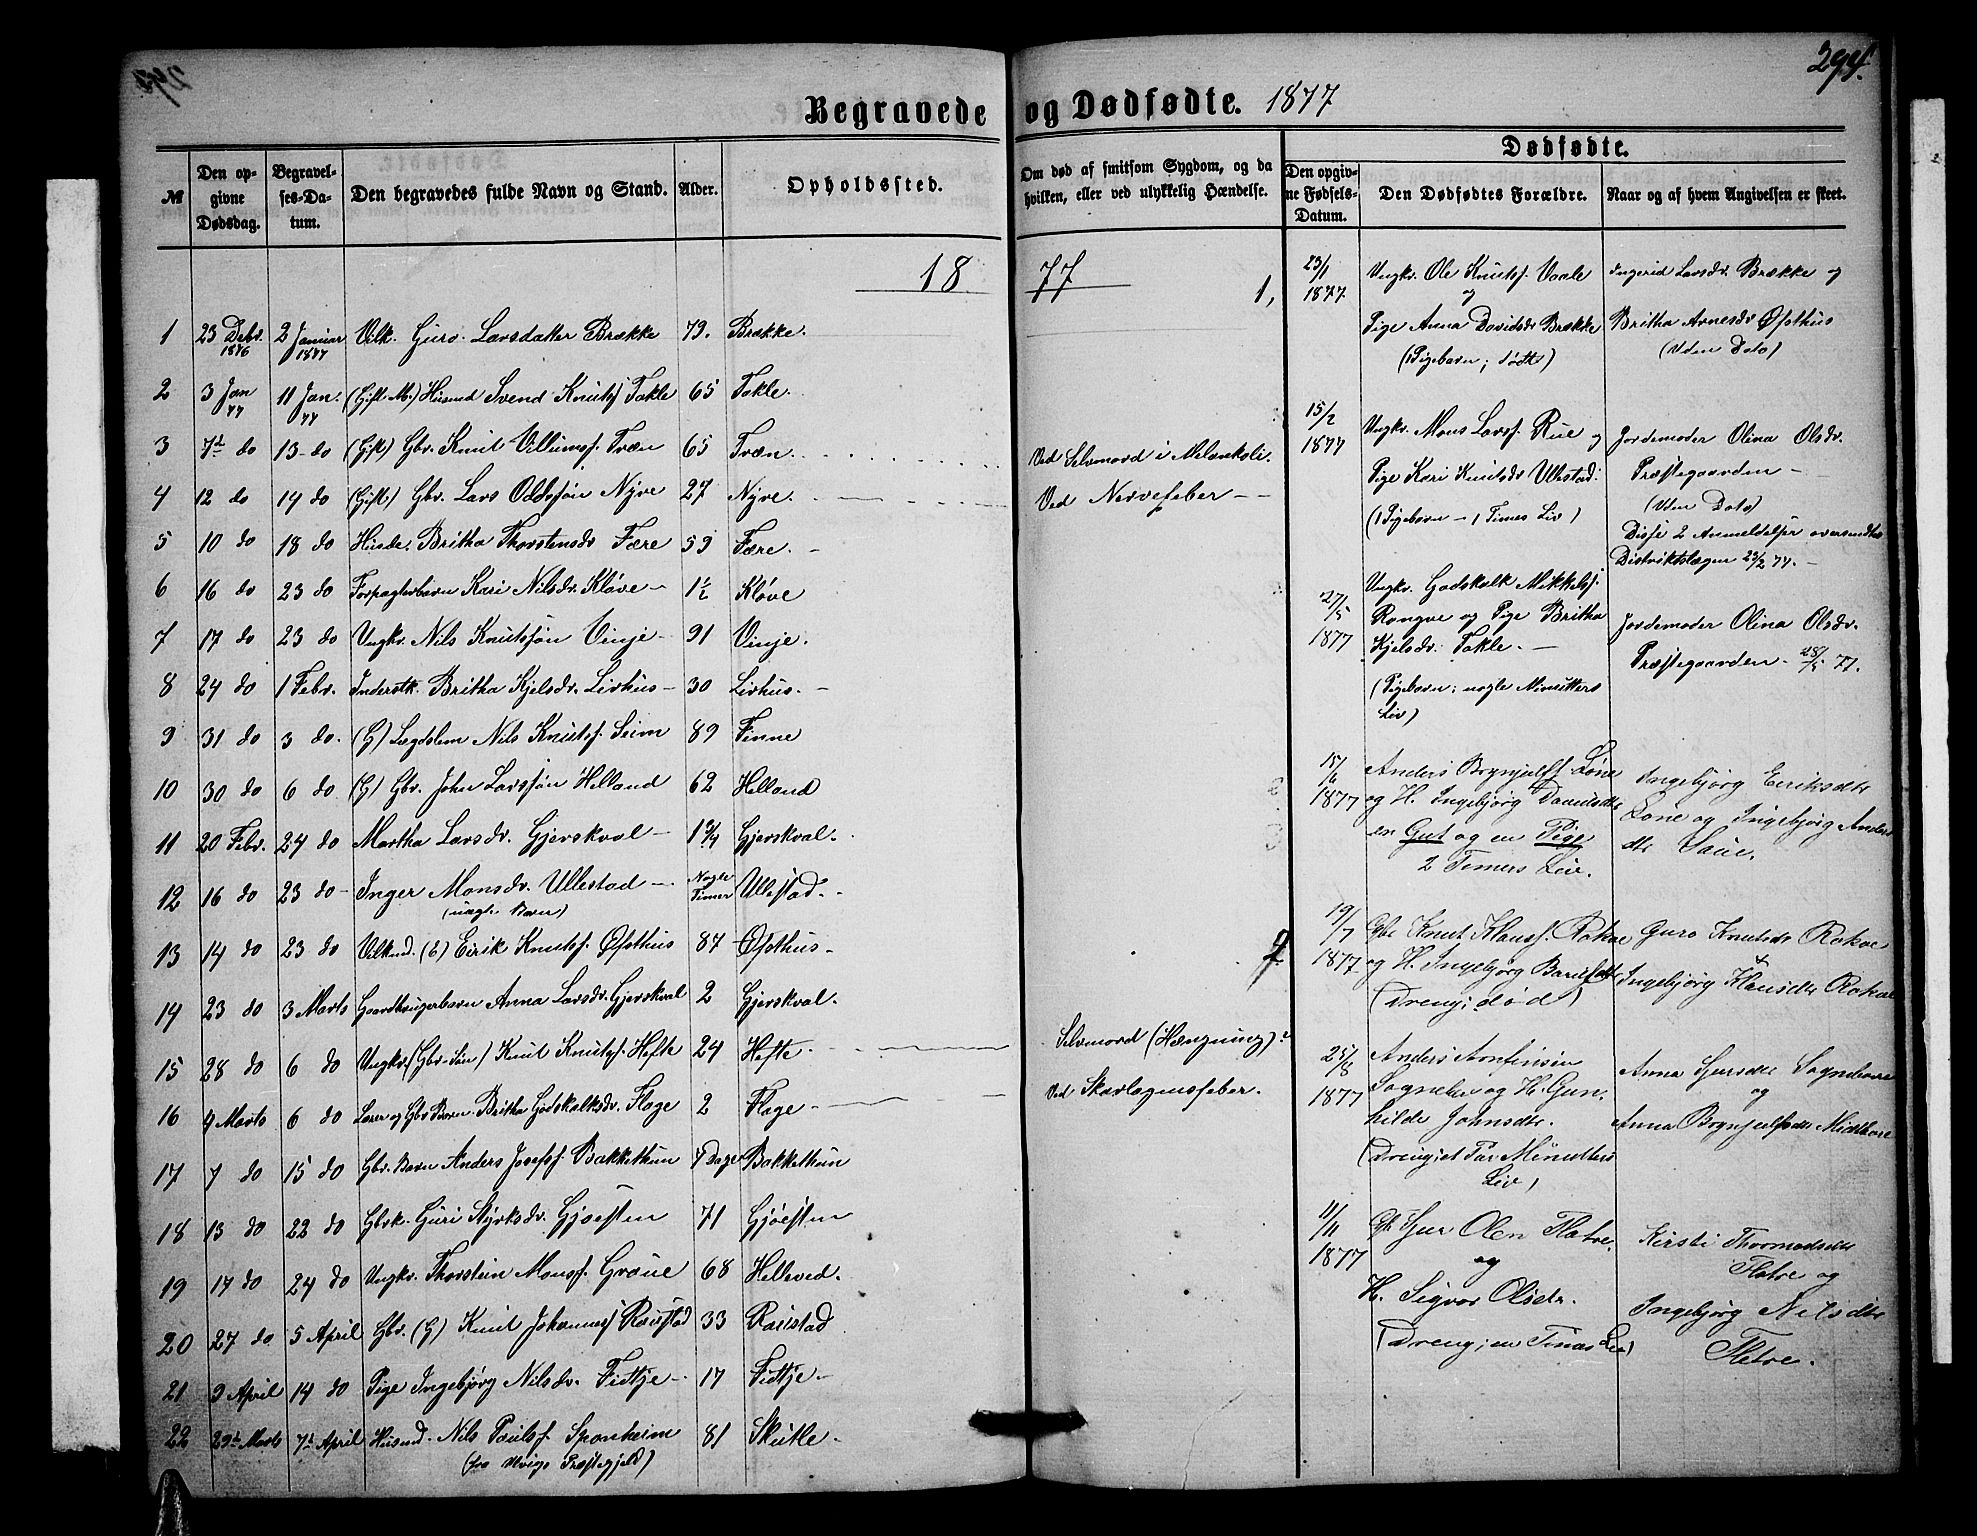 294.
Begravede og Dødfødte. 1877
№
Den opgivne Dødsdag.
Begravelses-Datum.
Den begravedes fulde Navn og Stand.
Alder.
Opholdssted.
Om død af smitsom Sygdom, og da hvilken, eller ved ulykkelig Hændelse.
Dødfødte.
Den opgivne Fødsels-Datum.
Den Dødfødtes Forældre.
Naar og af hvem Angivelsen er skeet.
1877
1 23 Debr. 1876 2 Januar 1877 Vilk. Guro Larsdatter Brække 79. Brække.
2 3 Jan 77 11 Jan. 77 (Gift M.) Husmd Svend Knutsf. Takle 65 Takle.
3 7d do 13 do (Gift) Gbr. Knut Villumsf. Træn 65 Træn. Ved Selvmord i Melankoli.
4 12 do 14 do (Gift) Gbr. Lars Oddsøn Nyre 27 Nyre. Ved Nervefeber
5 10 do 18 do Husde. Britha Thorstensdr Fære 59 Fære.
6 16 do 23 do Forpagterbarn Kari Nilsdr. Kløve 1½ Kløve
7 17 do 23 do Ungkr. Nils Knutssøn Vinje 91 Vinje.
8 24 do 1 Febr. Inderstk. Britha Kjelsdr. Lirhus 30 Lirhus.
9 31 do 3 do. (G) Lægdslem Nils Knutsf. Seim 89 Finne
10 30 do 6 do (G) Gbr. John Larssøn Helland 62 Helland
11 20 Febr. 24 do Martha Larsdr. Gjerskval 1¾ Gjerskval.
12 16 do 23 do Inger Monsdr. Ullestad Nogle Timer Ullestad.
(uægte Barn)
13 14 do 23 do Vilkmd. (E) Eirik Knutsf. Øfsthus 87 Øfsthus
14 23 do 3 Marts Gaardbrugerbarn Anna Larsdr. Gjerskval 2 Gjerskval.
15 28 do 6 do Ungkr. (Gbr. Søn) Knut Knutsf. Hefte 24 Hefte. Selvmord (Hængning)
16 4 Marts 6 do Lærer og Gbr Barn Britha Godskalksdr. Flage 2 Flage Ved Skarlagensfeber.
17 7 do 15 do Gbr. Barn Anders Josefsf. Bakkethun 7 Dage Bakkethun
18 13 do 22 do Gbrk. Guri Styrksdr. Gjøesten 71 Gjøesten
19 17 do 24 do Ungkr. Thorstein Monsf. Grøue 68 Helleved.
20 27 do 5 April Gbr. (G) Knut Johannesf Raustad 33 Raustad
21 9 April 14 do Pige Ingebjørg Nilsdr. Fidtje 17 Fidtje
22 29d Marts 7d April Husmd. Nils Poulsf. Sponheim 81 Skutle.
(fra Ulviks Præstegjeld)
1,
23/1 1877. Ungkr. Ole Knutsf. Vaale
og
Pige Anna Davidsdr Brække
(1 Pigebarn; dødt)
Ingerid Larsdr. Brække og
Britha Arnesdr Øfsthus
(Uden Dato)
15/2 1877 Ungkr. Mons Larsf. Rue og
Pige Kari Knutsdr Ullestad:
(1 Pigebarn – 1 Times Liv)
Jordemoder Olina Olsdr.
Præstegaarden
(Uden Dato)
Disse 2 Anmeldelser oversendtes
Distriktslægen 23/2 77.
27/5 1877 Ungkr. Godskalk Mikkelsf.
Rongve og Pige Britha
Kjelsdr. Takle.
(Pigebarn; nogle Minutters
Liv)
Jordemoder Olina Olsdr.
Præstegaarden. 28/5 77.
15/6 1877 Anders Brynjulfsf Løne
og H. Ingebjørg Davidsdtr
en Gut og en Pige
2 Timers Liv.
Ingebjørg Eriksdtr
Løne og Ingebjørg Anders
dtr Saue.
19/7 1877 Gbr Knut Klausf. Rokne
og H. Ingebjørg Baardsdtr
(Dreng; død)
Guro Knutsdtr Rokne
Ingebjørg Klausdtr Rokne
25/8 1877 Anders Arnfinsøn
Sognehær og H. Gun-
hilde Johnsdtr.
(Dreng; et Par Minutters
Liv)
Anna Sjursdtr
og
Anna Brynjulfsdtr
11/11 1877 Gbr Sjur Olsen Flatre.
og
H. Sigvor Olsdtr.
(Dreng; en Times Liv)
Kirsti Thormodsdtr
Flatre og
Ingebjørg Nilsdtr
Flatre.